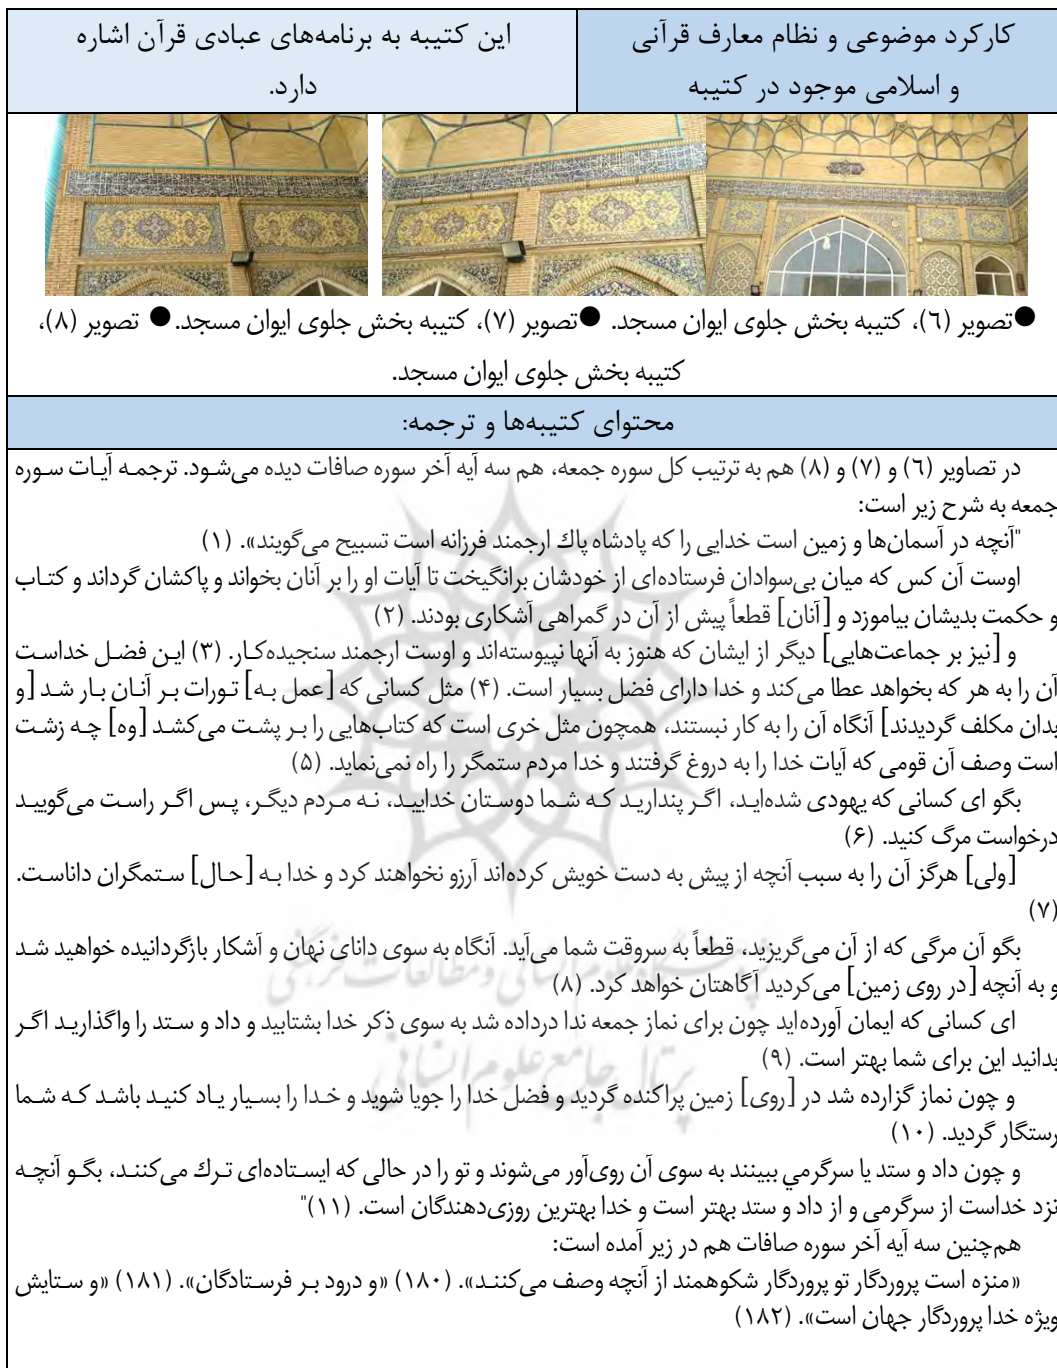 کارکرد موضوعی و نظام معارف قرآنی
و اسلامی موجود در کتیبه
این کتیبه به برنامه‌های عبادی قرآن اشاره
دارد.
●تصویر (٦)، کتیبه بخش جلوی ایوان مسجد. ●تصویر (٧)، کتیبه بخش جلوی ایوان مسجد.● تصویر (٨)،
کتیبه بخش جلوی ایوان مسجد.
محتوای کتیبه‌ها و ترجمه:
در تصاویر (٦) و (٧) و (٨) هم به ترتیب کل سوره جمعه، هم سه آیه آخر سوره صافات دیده می‌شود. ترجمه آیات سوره
جمعه به شرح زیر است:
"آنچه در آسمان‌ها و زمین است خدایی را که پادشاه پاك ارجمند فرزانه است تسبیح می‌گویند». (۱)
اوست آن کس که میان بی‌سوادان فرستاده‌ای از خودشان برانگیخت تا آیات او را بر آنان بخواند و پاکشان گرداند و کتاب
و حکمت بدیشان بیاموزد و [آنان] قطعاً پیش از آن در گمراهی آشکاری بودند. (۲)
و [نیز بر جماعت‌هایی] دیگر از ایشان که هنوز به آنها نپیوسته‌اند و اوست ارجمند سنجیده‌کار. (۳) این فضل خداست
آن را به هر که بخواهد عطا می‌کند و خدا دارای فضل بسیار است. (۴) مثل کسانی که [عمل به] تورات بر آنان بار شد [و
بدان مکلف گردیدند] آنگاه آن را به کار نبستند، همچون مثل خری است که کتاب‌هایی را بر پشت می‌کشد [وه] چه زشت
است وصف آن قومی که آیات خدا را به دروغ گرفتند و خدا مردم ستمگر را راه نمی‌نماید. (۵)
بگو ای کسانی که یهودی شده‌اید، اگر پندارید که شما دوستان خدایید، نه مردم دیگر، پس اگر راست می‌گویید
درخواست مرگ کنید. (۶)
[ولی] هرگز آن را به سبب آنچه از پیش به دست خویش کرده‌اند آرزو نخواهند کرد و خدا به [حال] ستمگران داناست.
(۷)
بگو آن مرگی که از آن می‌گریزید، قطعاً به سروقت شما می‌آید. آنگاه به سوی دانای نهان و آشکار بازگردانیده خواهید شد
و به آنچه [در روی زمین] می‌کردید آگاهتان خواهد کرد. (۸)
ای کسانی که ایمان آورده‌اید چون برای نماز جمعه ندا درداده شد به سوی ذکر خدا بشتابید و داد و ستد را واگذارید اگر
بدانید این برای شما بهتر است. (۹)
و چون نماز گزارده شد در [روی] زمین پراکنده گردید و فضل خدا را جویا شوید و خدا را بسیار یاد کنید باشد که شما
رستگار گردید. (۱۰)
و چون داد و ستد یا سرگرمي ببینند به سوی آن روی‌آور می‌شوند و تو را در حالی که ایستاده‌ای ترك می‌کنند، بگو آنچه
نزد خداست از سرگرمی و از داد و ستد بهتر است و خدا بهترین روزی‌دهندگان است. (۱۱)"
هم‌چنین سه آیه آخر سوره صافات هم در زیر آمده است:
«منزه است پروردگار تو پروردگار شکوهمند از آنچه وصف می‌کنند». (۱۸۰) «و درود بر فرستادگان». (۱۸۱) «و ستایش
ویژه خدا پروردگار جهان است». (۱۸۲)
پژوهشگاه علوم انسانی و مطالعات فرهنگی
پرتال جامع علوم انسانی